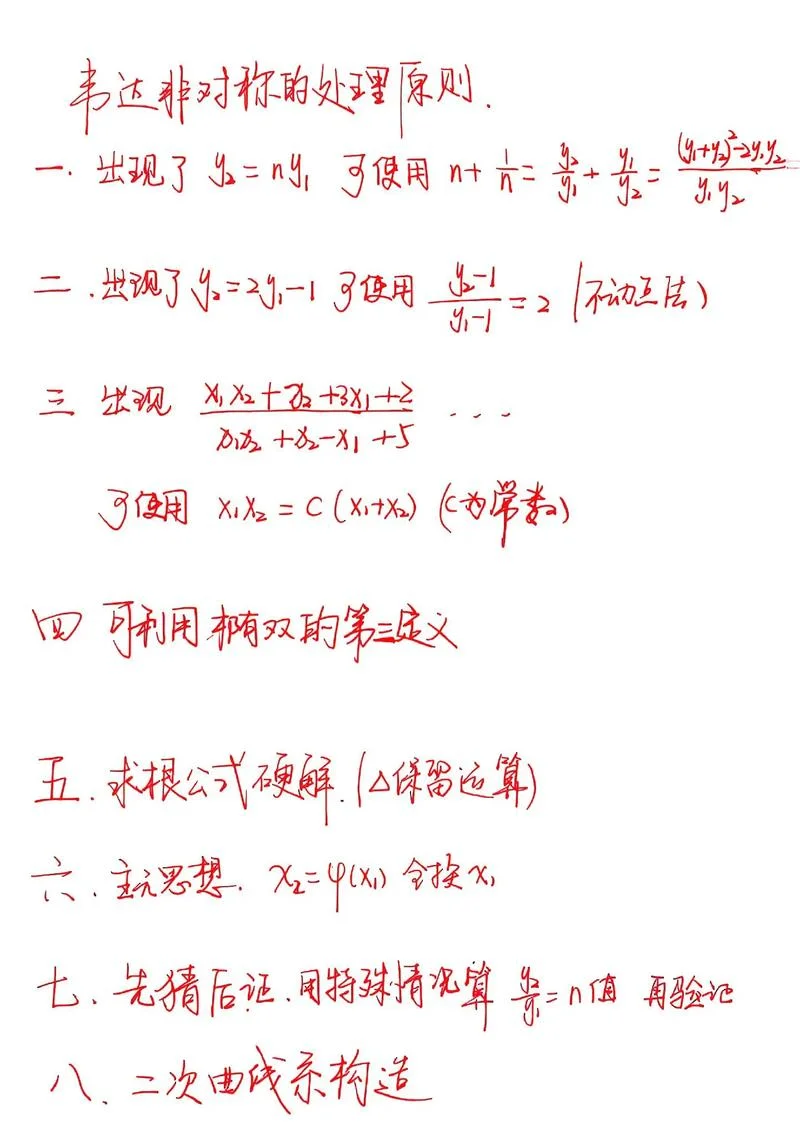 韦达非对称的处理原则.
一. 出现了 y₂=ny₁ 可使用 n+1/n=y₂/y₁+y₁/y₂=((y₁+y₂)²-2y₁y₂)/(y₁y₂)
二.出现了 y₂=2y₁-1 可使用 (y₂-1)/(y₁-1)=2 (不动点法)
三 出现 (x₁x₂+x₂+3x₁+2)/(x₁x₂+x₂-x₁+5) ...
可使用 x₁x₂=C(x₁+x₂) (C为常数)
四 可利用椭有双的第三定义
五.求根公式硬解.(△保留运算)
六.主元思想. x₂=φ(x₁) 全换x₁
七.先猜后证.用特殊情况算 y₂/y₁=n值 再验证
八.二次曲线系构造